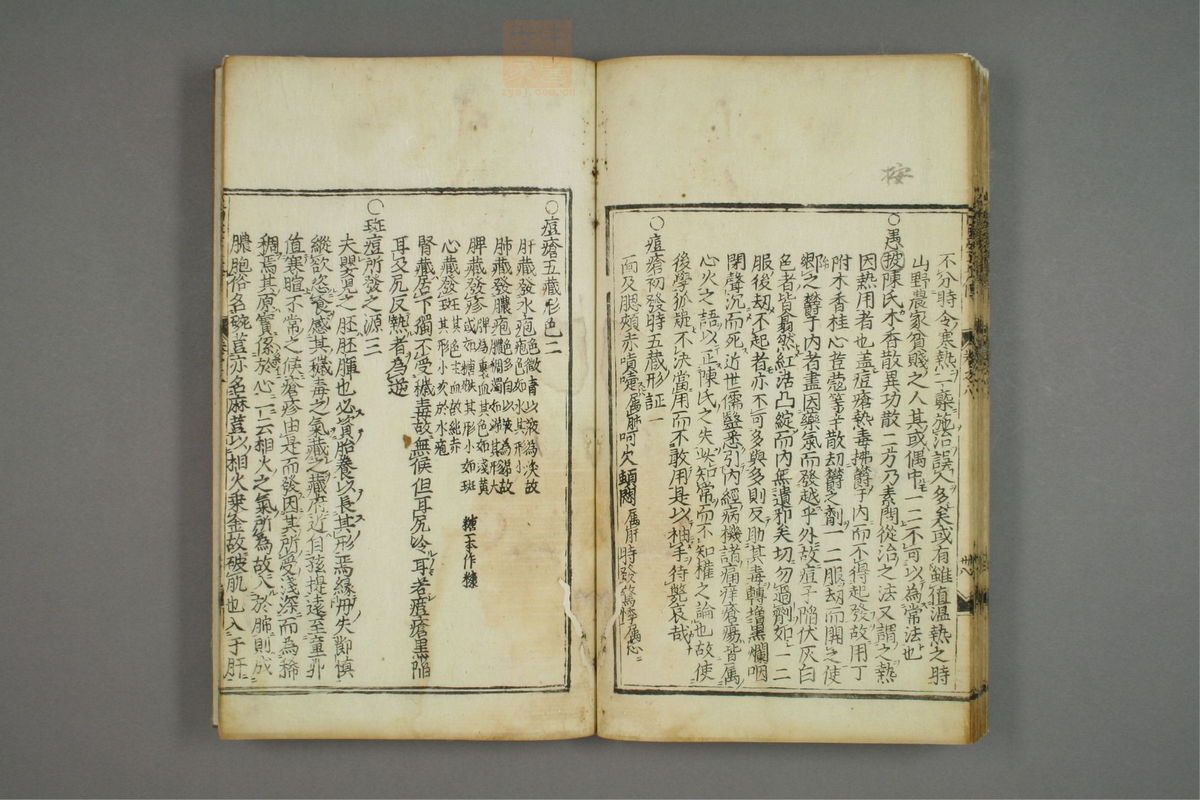 按
不分時令寒熱一槩施治誤人多矣或有雖值温熱之時
山野農家貧賤之人其或偶中一二不可以為常法也
○愚按陳氏木香散異功散二方乃素問從治之法又謂之熱
因熱用者也盖痘瘡熱毒拂欝于内而不得起發故用丁
附木香桂心荳蔲等辛散刼欝之劑一二服刼而開之使
欝于内者盡因藥氣而發越乎外故痘子陷伏灰白
色者皆翕然紅活凸綻而内無遺邪矣切勿過劑如一二
服後刼不起者亦不可多與多則反助其毒轉増黒爛咽
閉聲沉而死近世儒醫悉引内經病機諸痛痒瘡瘍皆属
心火之語以正陳氏之失此知常而不知權之論也故使
後學狐疑不決當用而不敢用是以袖手待斃哀哉
○痘瘡初發時五藏形証一
面及腮頰赤噴嚏属肺呵欠頓悶属肝時發驚悸属心
○痘瘡五藏形色二
肝藏發水疱色微青以液為淚故疱色如水其形小
肺藏發膿疱色多白以液為涕故膿稠濁如涕其形大
脾藏發疹脾為裹血其色如淺黄或如糖糗其形小如斑
糖一本作糠
心藏發斑其色主血故純赤其形小次於水疱
腎藏居下獨不受穢毒故無候但耳尻冷耳若瘡瘡黒陷
耳及尻反熱者為逆
○斑痘所發之源三
夫嬰児之胚胚腪也必資胎養以長其形焉縁母失節慎
縱欲恣食感其穢毒之氣藏之藏府近自孩提遠至童丱
值寒暄不常之候瘡疹由是而發因其所受浅深而為稀
稠焉其原實係於心一云相火之氣所為故入於肺則成
膿胞俗名碗荳亦名麻荳以相火乗金故破肌也入于肝